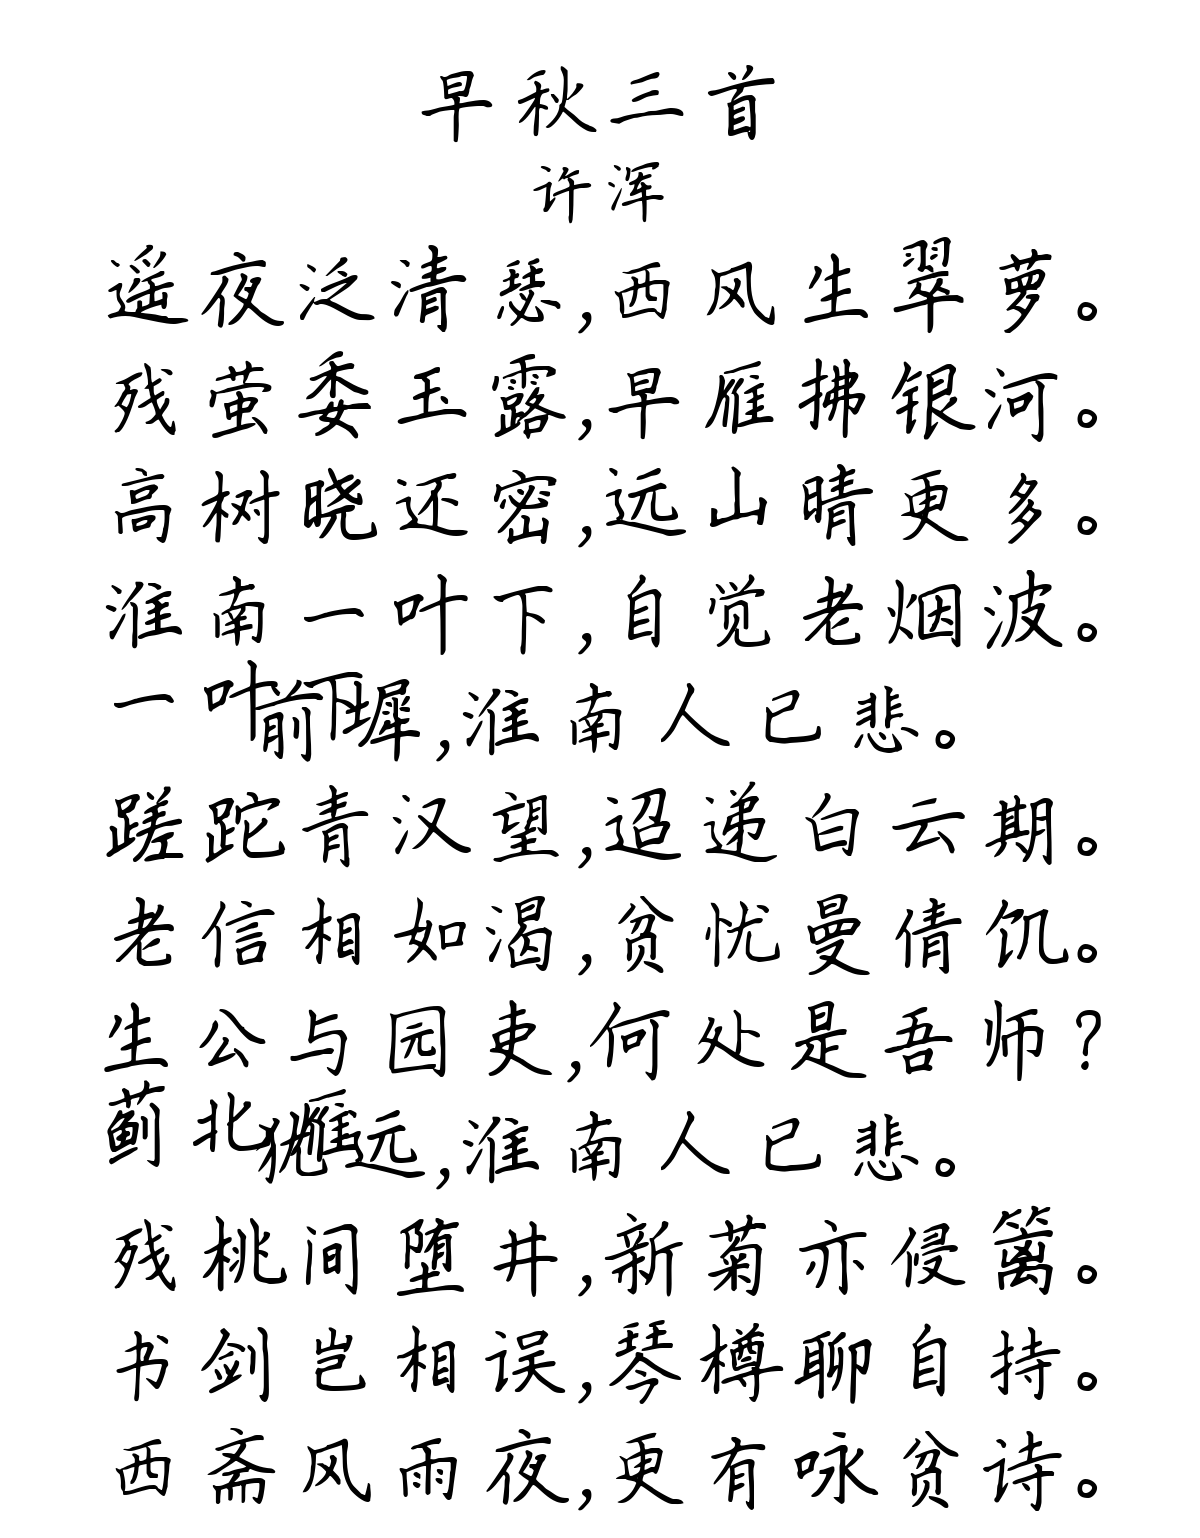 早秋三首
许浑
遥夜泛清瑟,西风生翠萝。
残萤委玉露,早雁拂银河。
高树晓还密,远山晴更多。
淮南一叶下,自觉老烟波。
一叶下前墀,淮南人已悲。
蹉跎青汉望,迢递白云期。
老信相如渴,贫忧曼倩饥。
生公与园吏,何处是吾师?
蓟北雁犹远,淮南人已悲。
残桃间堕井,新菊亦侵篱。
书剑岂相误,琴樽聊自持。
西斋风雨夜,更有咏贫诗。